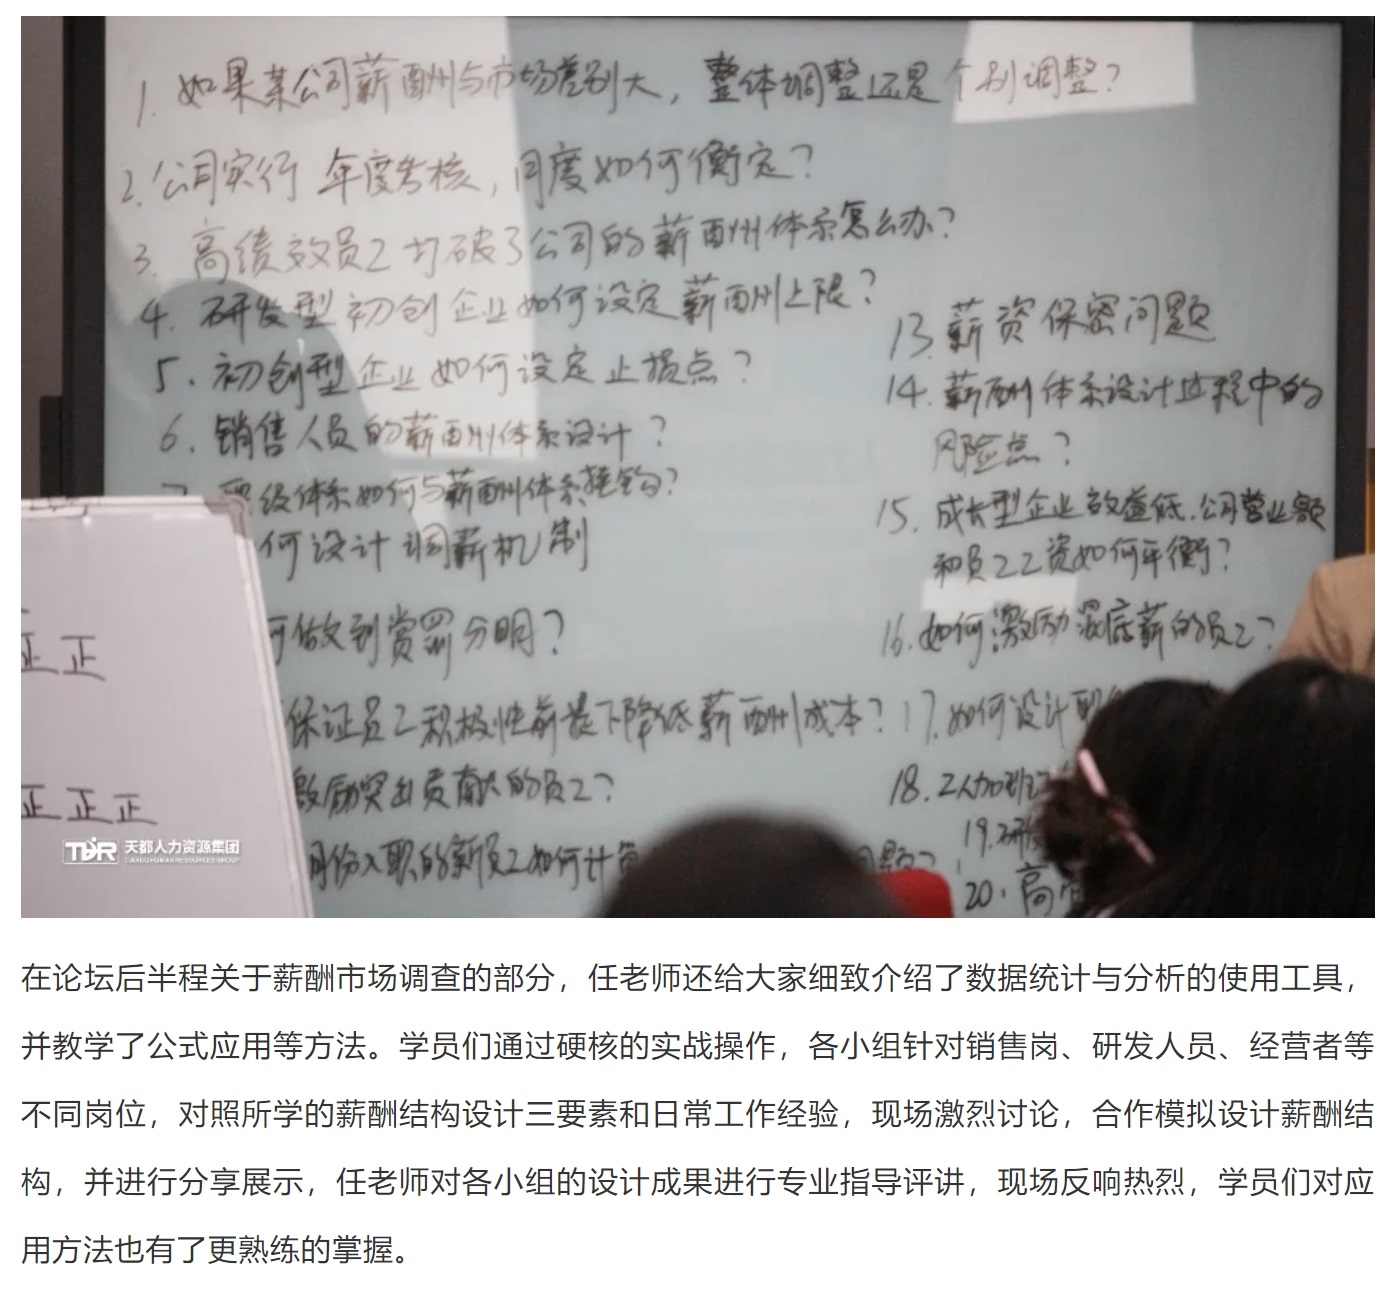 1. 如果某公司薪酬与市场差别大，整体调整还是个别调整？
2. 公司实行年度考核，月度如何衡定？
3. 高绩效员工打破了公司的薪酬体系怎么办？
4. 研发型初创企业如何设定薪酬上限？
5. 初创型企业如何设定止损点？
6. 销售人员的薪酬体系设计？
职级体系如何与薪酬体系挂钩？
何设计调薪机制
何做到赏罚分明？
保证员工积极性前提下降低薪酬成本？
激励突出贡献的员工？
月份入职的新员工如何计算
问题？
13. 薪资保密问题
14. 薪酬体系设计过程中的
风险点？
15. 成长型企业效益低，公司营业额
和员工工资如何平衡？
16. 如何激励混底薪的员工？
17. 如何设计职
18. 工人加班
19. 研
20. 高
正正
正正正
TDR 天都人力资源集团
TIANDU HUMAN RESOURCES GROUP
在论坛后半程关于薪酬市场调查的部分，任老师还给大家细致介绍了数据统计与分析的使用工具，
并教学了公式应用等方法。学员们通过硬核的实战操作，各小组针对销售岗、研发人员、经营者等
不同岗位，对照所学的薪酬结构设计三要素和日常工作经验，现场激烈讨论，合作模拟设计薪酬结
构，并进行分享展示，任老师对各小组的设计成果进行专业指导评讲，现场反响热烈，学员们对应
用方法也有了更熟练的掌握。